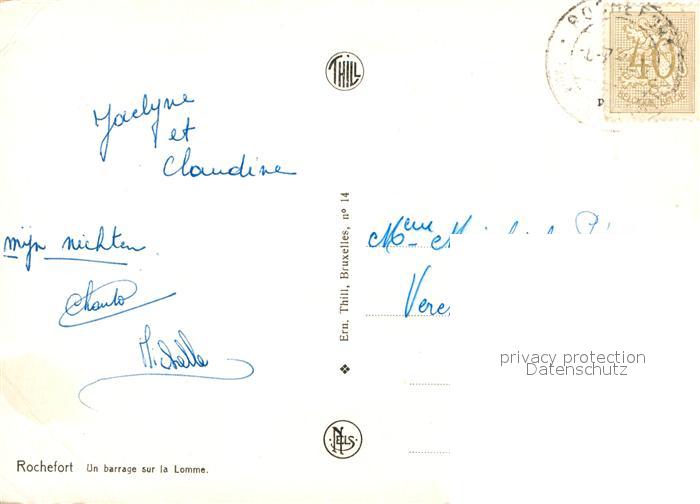 THILL
ROCHEFORT
40
BELGIQUE-BELGIE
Jaclyne
et
Claudine
mijn nichten
Michelle
Ern. Thill, Bruxelles, nº 14
NELS
Mme
privacy protection
Datenschutz
Rochefort Un barrage sur la Lomme.